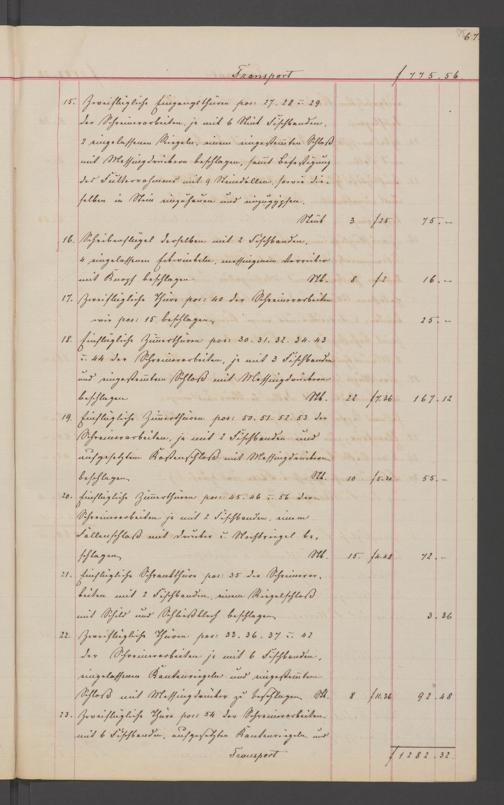 67.
Transport f 775.56
15. Zweiflüglige Eingangsthüren pos: 27. 28 u. 29
der Schreinerarbeiten, je mit 6 Stück Fischbanden,
2 eingelassenen Riegeln, einem eingestemmten Schloß
mit Messingdrückern beschlagen, sammt Befestigung
des Futterrahmens mit 9 Steindollen, sowie die-
selben in Stein einzuhauen und einzugypsen.
Stück 3 f 25 75.–
16. Scheibenflügel derselben mit 2 Fischbanden,
4 eingelassenen Eckwinkeln, messingenem Vorreiber
mit Knopf beschlagen St. 8 f 2 16.–
17. Zweiflüglige Thüre pos: 40 der Schreinerarbeiten
wie pos: 15 beschlagen, 25.–
18. Einflüglige Zimmerthüren pos: 30. 31. 32. 34. 43
u. 44 der Schreinerarbeiten, je mit 3 Fischbanden
und eingestemmtem Schloß mit Messingdrückern
beschlagen St. 22 f 7.36 167.12
19. Einflüglige Zimmerthüren pos: 50. 51. 52. 53 der
Schreinerarbeiten, je mit 2 Fischbanden und
aufgesetztem Kastenschloß mit Messingdrückern
beschlagen, St. 10 f 5.30 55.–
20. Einflüglige Zimmerthüren pos: 45. 46 u. 56 der
Schreinerarbeiten je mit 2 Fischbanden, einem
Fallenschloß mit Drücker u. Nachtriegel be-
schlagen, St. 15 f 4.48 72.–
21. Einflüglige Schrankthüre pos: 35 der Schreinerar-
beiten mit 2 Fischbanden, einem Riegelschloß
mit Schild und Schließblech beschlagen, 3.36
22. Zweiflüglige Thüren pos: 33. 36. 37 u. 42
der Schreinerarbeiten je mit 6 Fischbanden,
eingelassenen Kantenriegeln und eingestemmtem
Schloß mit Messingdrücker zu beschlagen. St. 8 f 11.36 92.48
23. Zweiflüglige Thüre pos: 54 der Schreinerarbeiten
mit 6 Fischbanden, aufgesetzten Kantenriegeln und
Transport f 1282.32